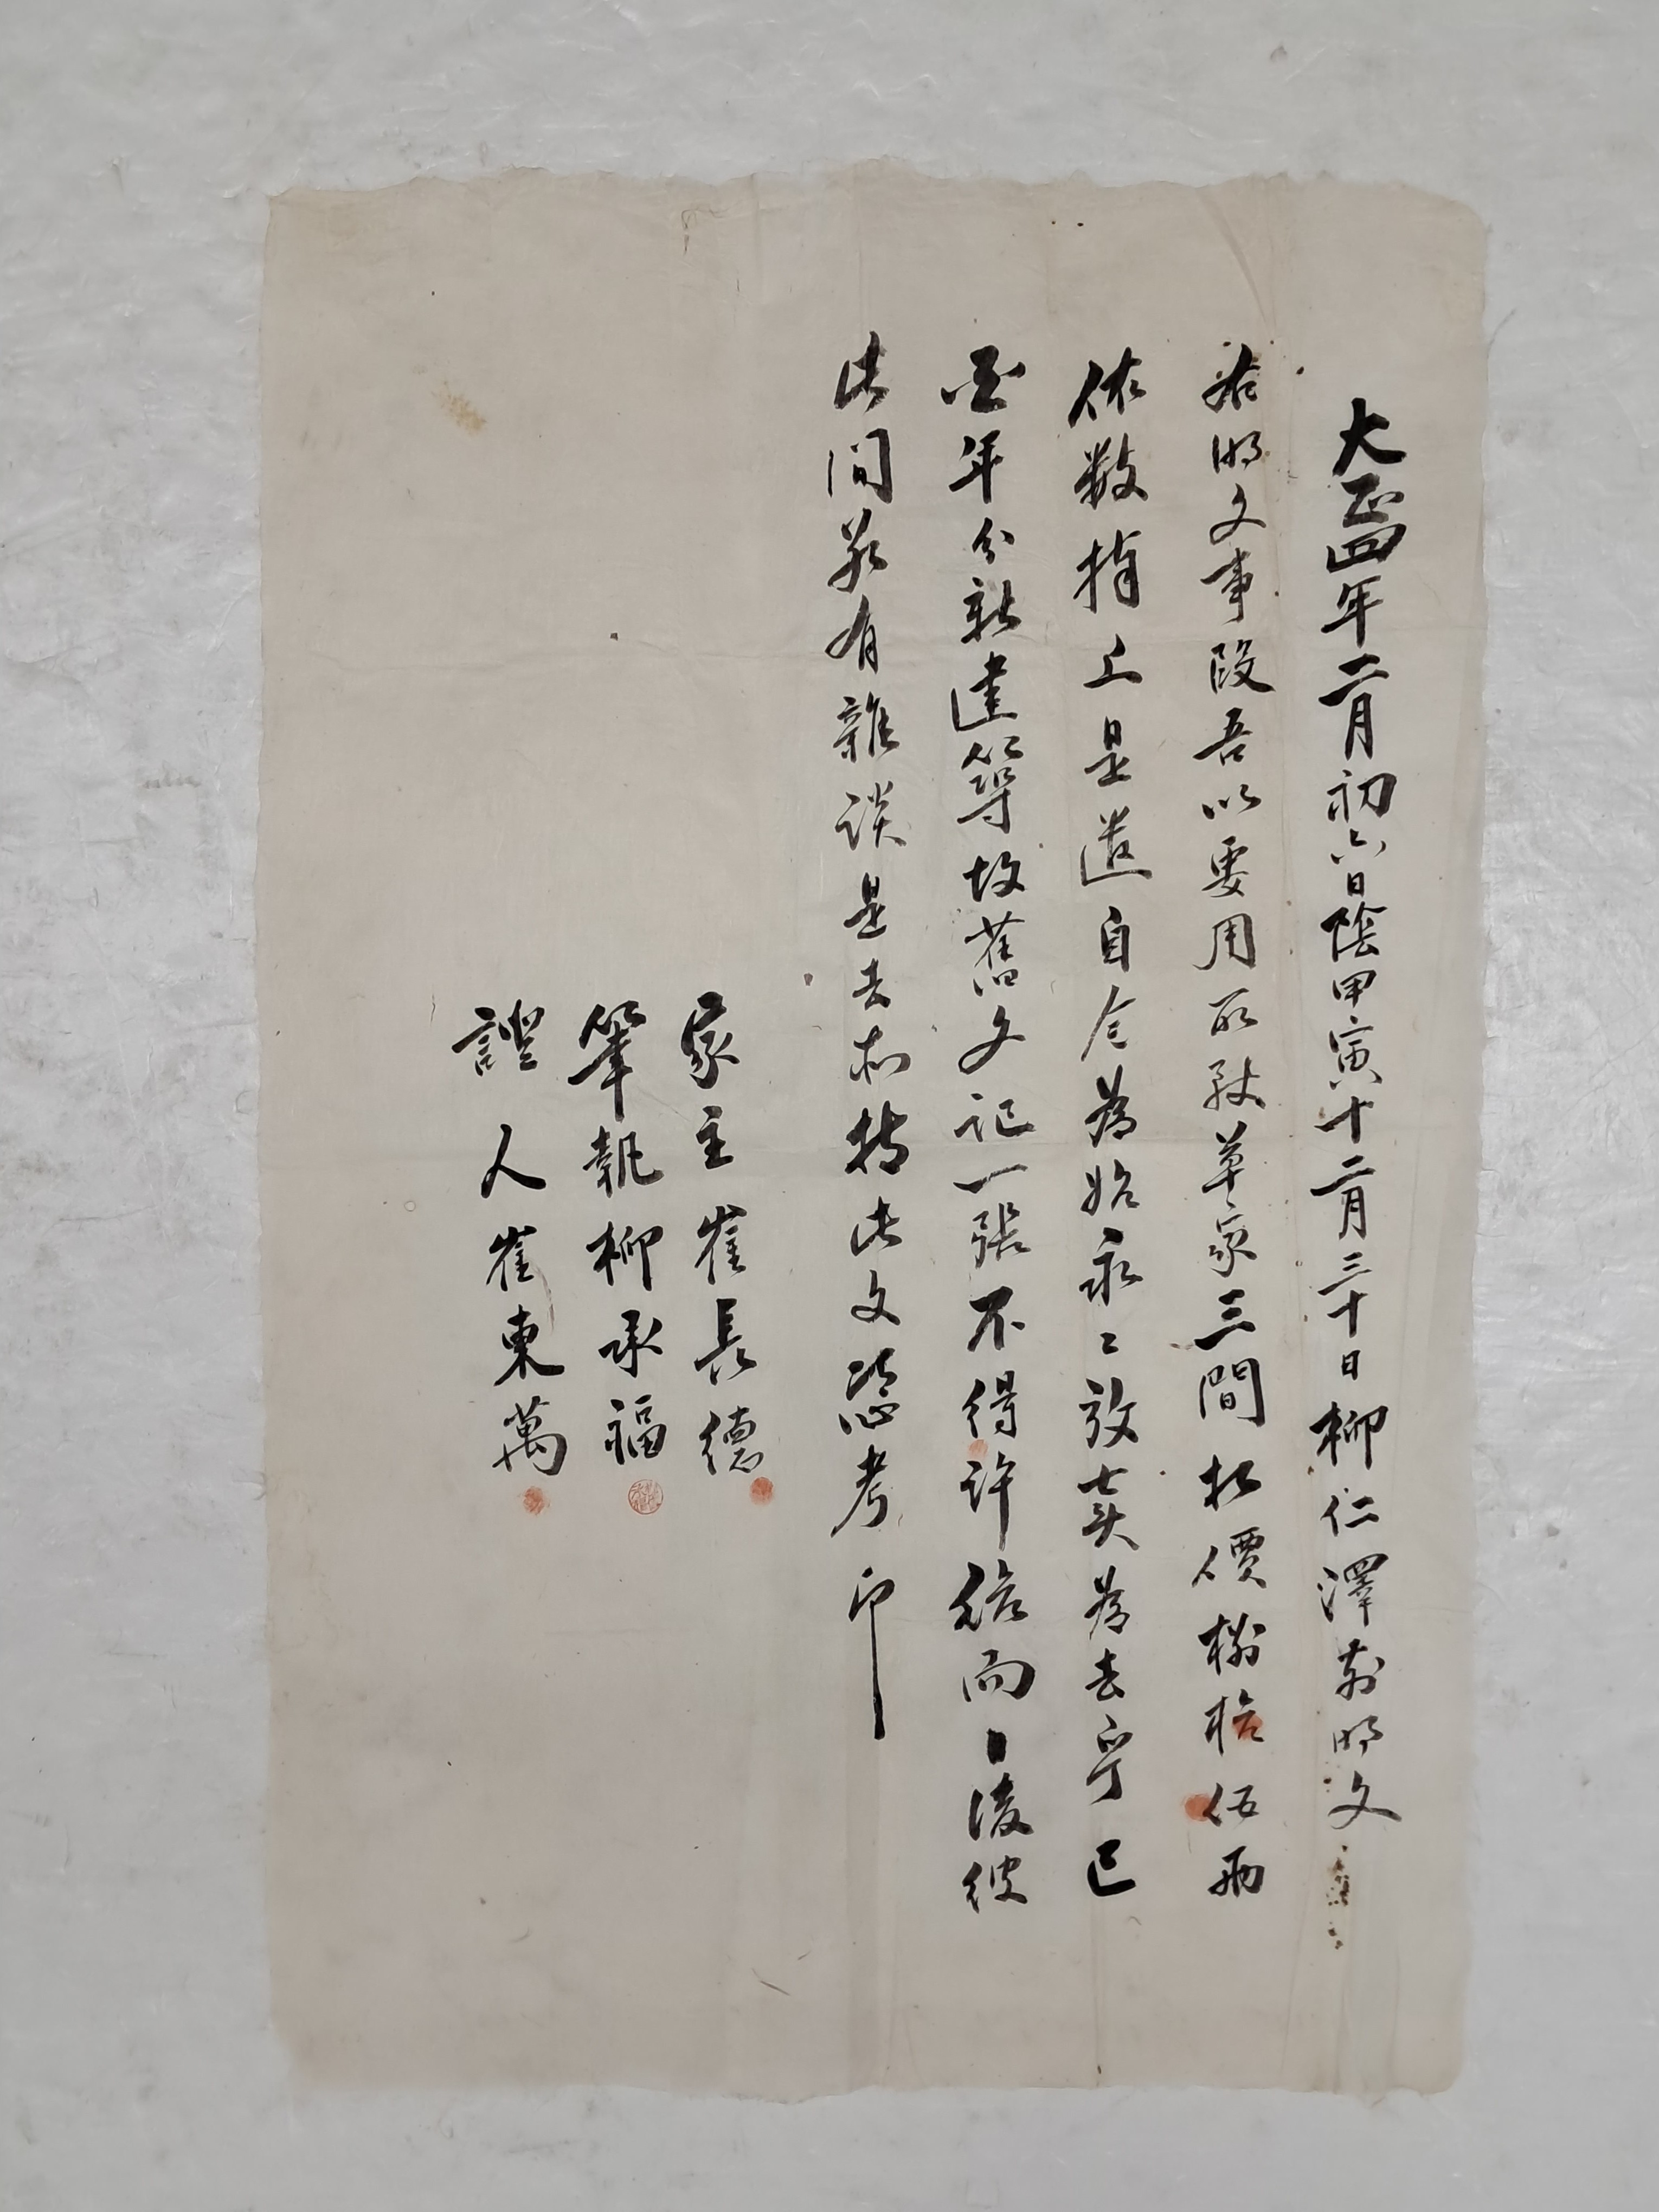 大正四年二月初六日陰甲寅十二月三十日柳仁澤前明文
右明文事段吾以要用所致草家三間折價捌拾伍兩
依數捧上是遣自今為始永々放賣為去乎已
年分新建等故舊文記一張不得許給而日後彼
此間若有雜談是去和持此文憑考印
家主崔長德
筆執柳承福
證人崔東萬